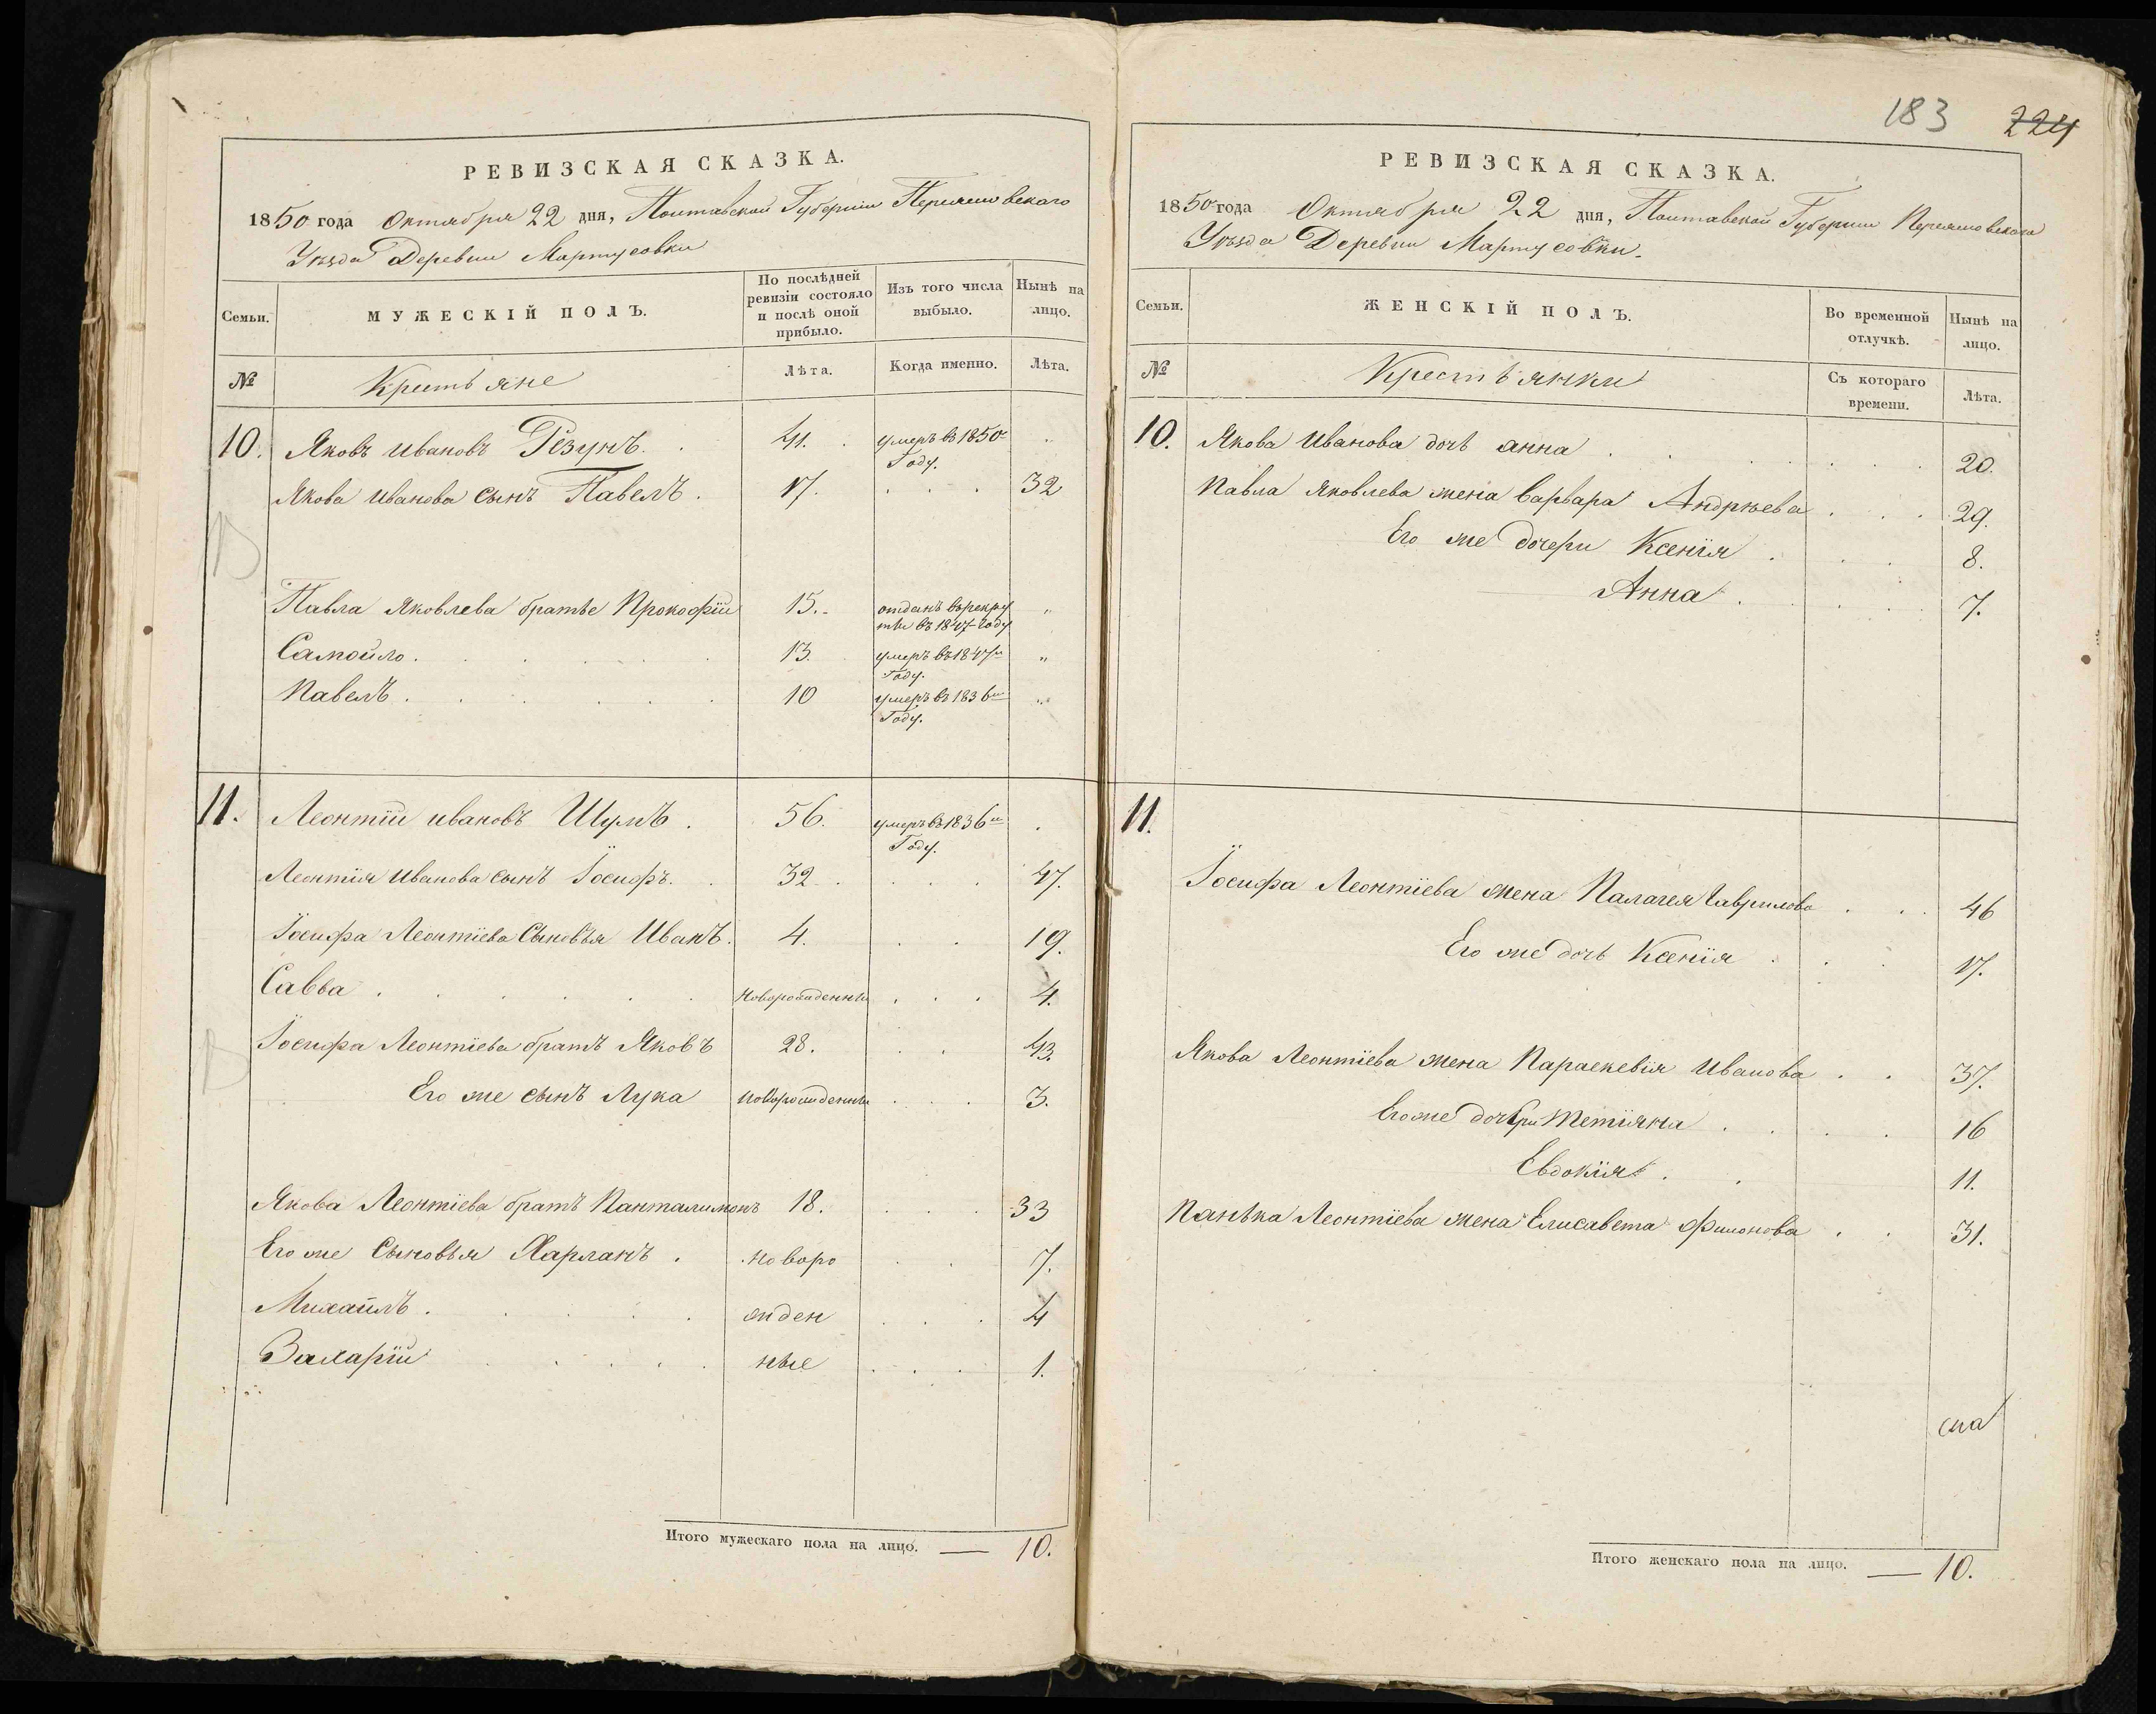 РЕВИЗСКАЯ СКАЗКА.
1850 года Октября 22 дня, Полтавской Губернiи Переяславского
Уѣзда Деревни Мартусовки
Семьи.
МУЖЕСКIЙ ПОЛЪ.
По послѣдней ревизiи состояло и послѣ оной прибыло.
Изъ того числа выбыло.
Нынѣ на лицо.
№
Крестьяне
Лѣта.
Когда именно.
Лѣта.
10. Яковъ Ивановъ Резунъ. 41. умеръ въ 1850
Году.
Якова Иванова сынъ Павелъ. 17. 32
Павла Яковлева братье Прокофiй 15. отданъ въ рекру
ты въ 1847 году
Самойло. 13. умеръ въ 1847м
Году.
Павелъ. 10 умеръ въ 1836м
Году.
11. Леонтiй Ивановъ Шумъ. 56. умеръ въ 1836м
Году.
Леонтiя Иванова сынъ Iосифъ. 32 47.
Iосифа Леонтiева Сыновья Иванъ. 4. 19.
Савва. новорожденный 4.
Iосифа Леонтiева братъ Яковъ 28. 43.
Его же сынъ Лука новорожденный 3.
Якова Леонтiева братъ Панталимонъ 18. 33
Его же Сыновья Харланъ. новоро 7.
Михаилъ. жден 4
Захарiй ные 1.
Итого мужескаго пола на лицо. — 10.
183 224
РЕВИЗСКАЯ СКАЗКА.
1850 года Октября 22 дня, Полтавской Губернiи Переяславского
Уѣзда Деревни Мартусовки.
Семьи.
ЖЕНСКIЙ ПОЛЪ.
Во временной отлучкѣ.
Нынѣ на лицо.
№
Крестьянки
Съ котораго времени.
Лѣта.
10. Якова Иванова дочь Анна 20.
Павла Яковлева жена Варвара Андрѣева 29.
Его же дочери Ксенiя 8.
Анна. 7.
11.
Iосифа Леонтiева жена Палагея Гаврилова 46
Его же дочь Ксенiя 17.
Якова Леонтiева жена Параскевiя Иванова 37.
Его же дочери Тетiяна 16
Евдокiя. 11.
Панька Леонтiева жена Елисавета Филонова 31.
Итого женскаго пола на лицо. — 10.